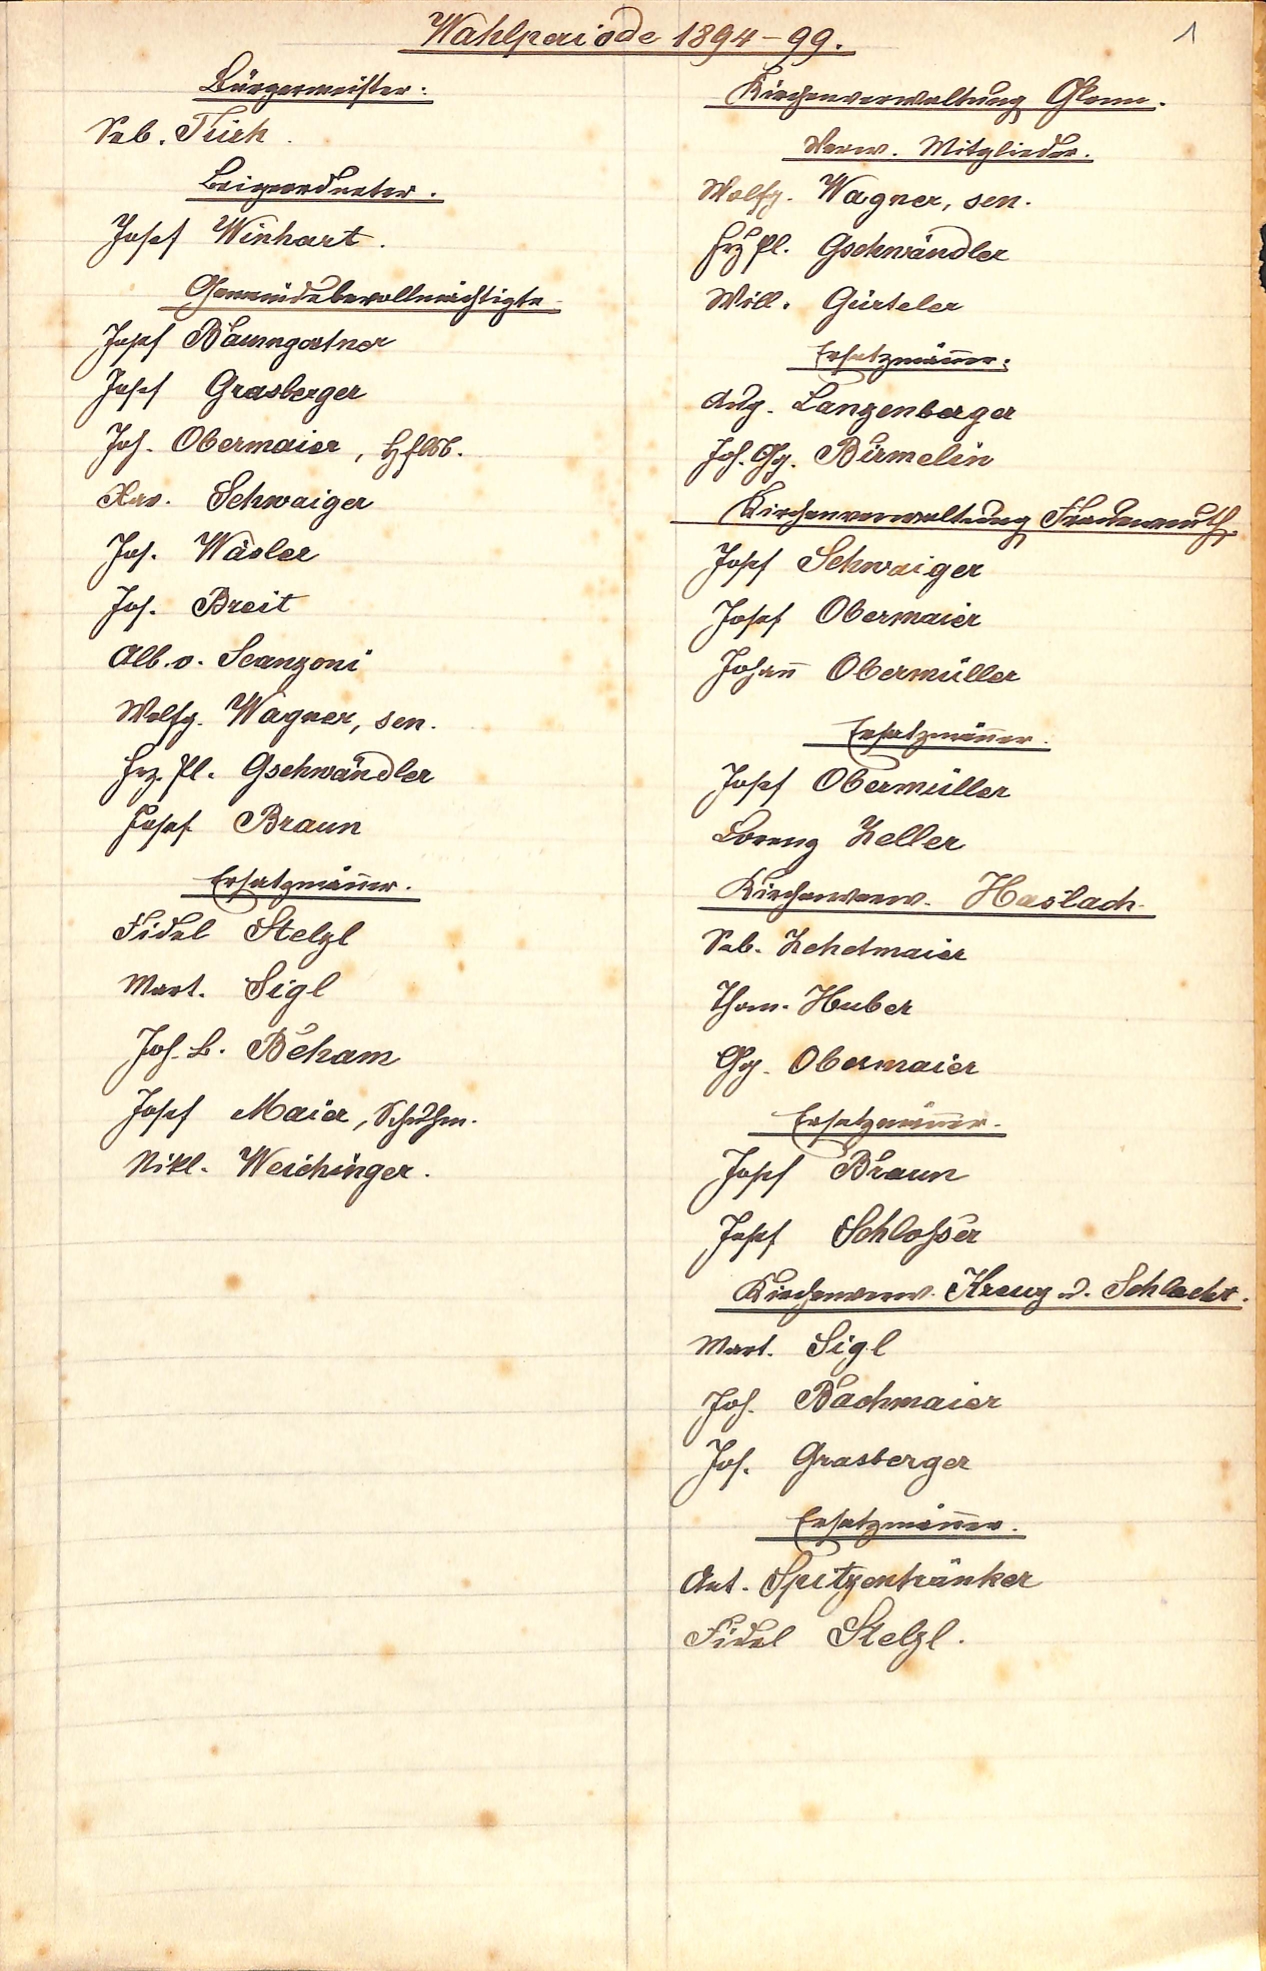 Wahlperiode 1894-99.
1
Bürgermeister:
Seb.
Beigeordneter.
Josef Winhart.
Gemeindebevollmächtigte
Josef Baumgartner
Josef Grasberger
Joh. Obermaier,
Xav. Schwaiger
Jos. Wäsler
Jos. Breit
Alb. v. Scanzoni
Wolfg. Wagner, sen.
Frz. Pl. Gschwändler
Josef Braun
Ersatzmänner.
Fidel Stelzl
Mart. Sigl
Joh. B. Beham
Josef Maier, Schuhm.
Nikl. Weichinger.
Kirchenverwaltung Glonn.
Verw. Mitglieder.
Wolfg. Wagner, sen.
Frz Pl. Gschwändler
Will. Gürteler
Ersatzmänner:
Aug. Lanzenberger
Joh. Gg. Birmelin
Kirchenverwaltung Frauenreuth.
Josef Schwaiger
Josef Obermaier
Johan̄ Obermüller
Ersatzmänner.
Josef Obermüller
Lorenz Zeller
Kirchenverw. Haslach.
Seb. Zehetmaier
Thom. Huber
Gg. Obermaier
Ersatzmänner.
Josef Braun
Josef Schloßer
Kirchenverw. Kreuz u. Schlacht.
Mart. Sigl
Joh. Bachmaier
Jos. Grasberger
Ersatzmänner.
Ant. Spitzentränker
Fidel Stelzl.